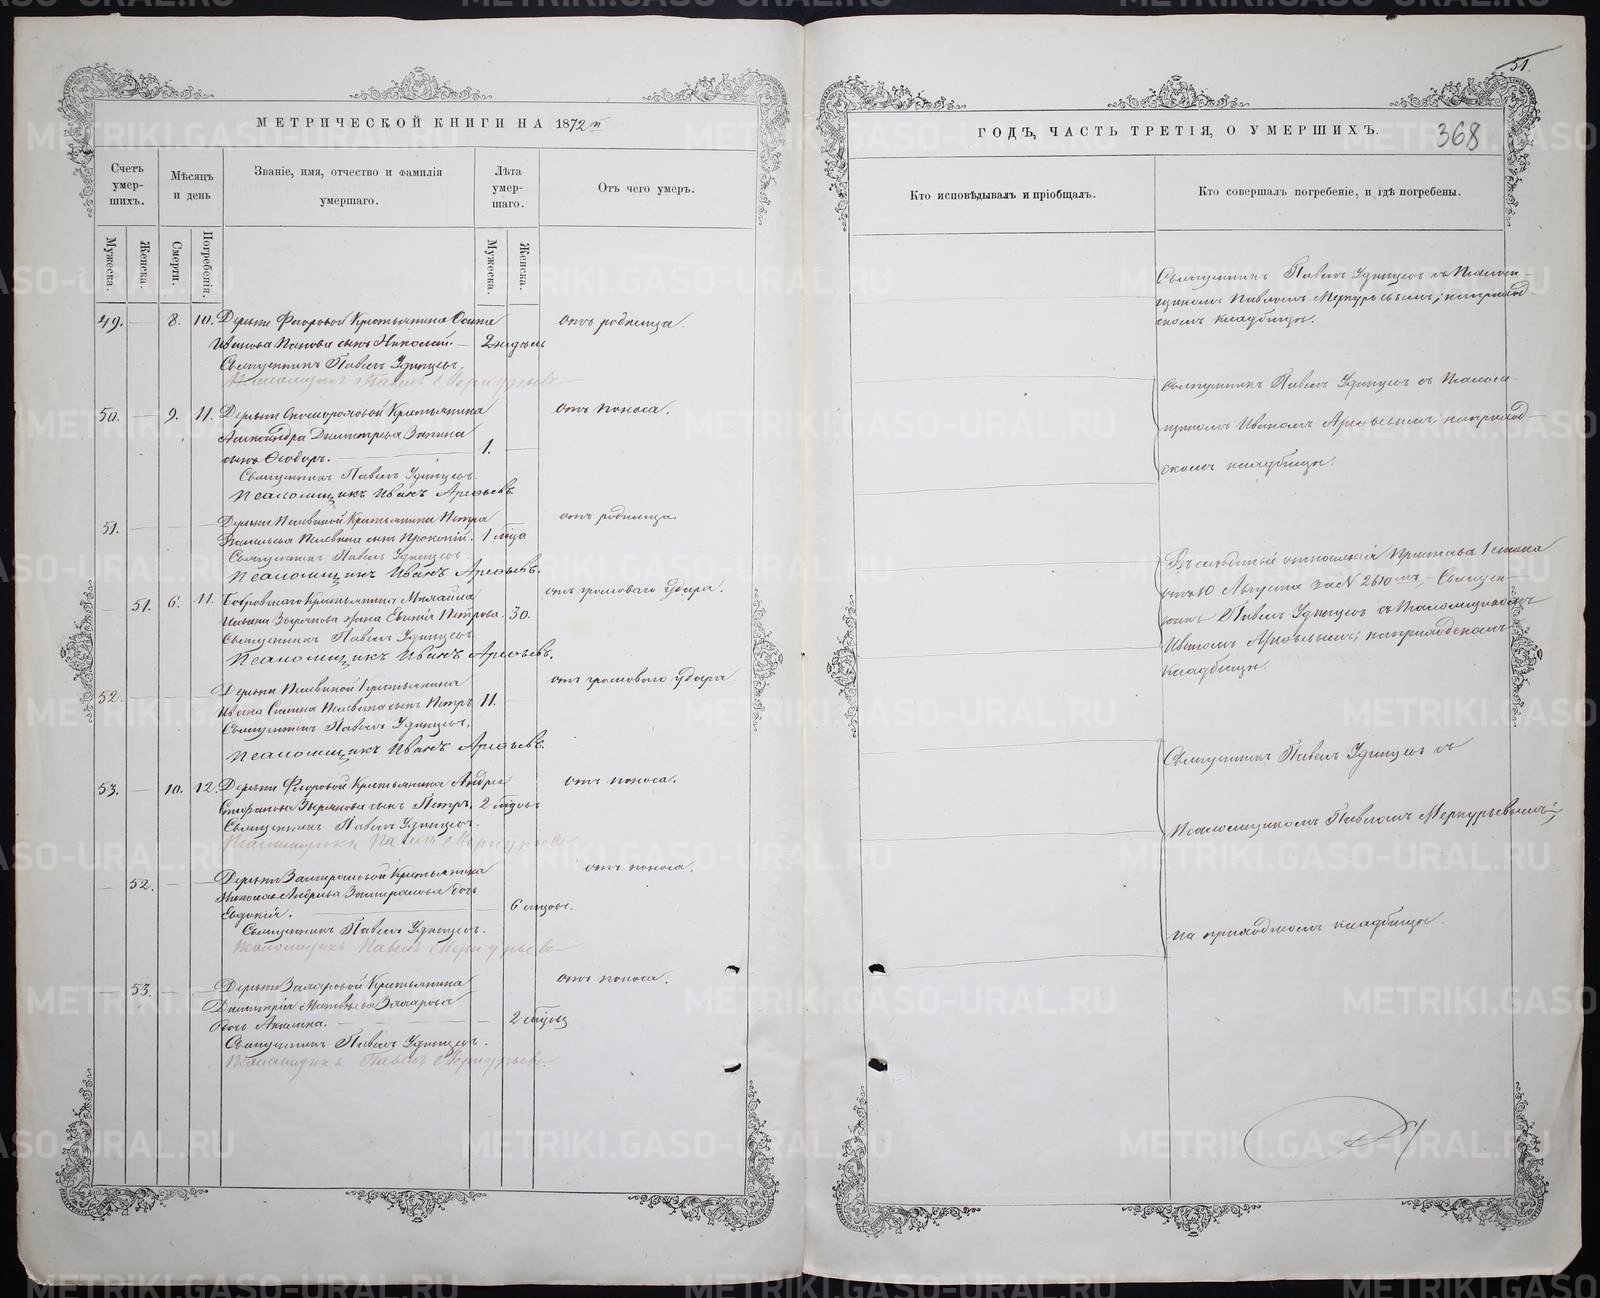 51.
МЕТРИЧЕСКОЙ КНИГИ НА 1872й
ГОДЪ, ЧАСТЬ ТРЕТІЯ, О УМЕРШИХЪ.
368
Счетъ умер-шихъ.
Мѣсяцъ и день
Званіе, имя, отчество и фамилія умершаго.
Лѣта умер-шаго.
Отъ чего умеръ.
Кто исповѣдывалъ и пріобщалъ.
Кто совершалъ погребеніе, и гдѣ погребены.
Мужеска.
Женска.
Смерти.
Погребенія.
Мужеска.
Женска.
49. 8. 10. Деревни Крестьянина Осипа
Иванова Панова сынъ Николай. 2 недѣль
отъ родимца.
Священникъ Павелъ Удинцевъ
Псаломщикъ Павелъ Меркурьевъ
50. 9. 11. Деревни Крестьянина
Александра Дмитріева Зыкина
сынъ Ѳеодоръ. 1.
отъ поноса.
Священникъ Павелъ Удинцевъ.
Псаломщикъ Иванъ Арефьевъ
51. Деревни Крестьянина Петра
сынъ Прокопій. 1 мѣсяца
отъ родимца.
Священникъ Павелъ Удинцевъ.
Псаломщикъ Иванъ Арефьевъ.
51. 6. 11. Крестьянина Михаила
жена Евгенія Петрова. 30.
отъ громоваго удара.
Священникъ Павелъ Удинцевъ
Псаломщикъ Иванъ Арефьевъ.
52. Деревни Крестьянина
Ивана сынъ Петръ 11.
отъ громоваго удара
Священникъ Павелъ Удинцевъ.
Псаломщикъ Иванъ Арефьевъ.
53. 10. 12. Деревни Крестьянина Андрея
Стефанова Зырянова сынъ Петръ. 2
отъ поноса.
Священникъ Павелъ Удинцевъ.
Псаломщикъ Павелъ Меркурьевъ
52. Деревни Крестьянина
Николая Андреева дочь
Евдокія. 6
отъ поноса.
Священникъ Павелъ Удинцевъ.
Псаломщикъ Павелъ Меркурьевъ
53. Деревни Захаровой Крестьянина
Димитрія Матвѣева Захарова
дочь Акилина. 2
отъ поноса.
Священникъ Павелъ Удинцевъ.
Псаломщикъ Павелъ Меркурьевъ
Священникъ Павелъ Удинцевъ съ Псалом-
щикомъ Павломъ Меркурьевымъ; на приход-
скомъ кладбищѣ.
Священникъ Павелъ Удинцевъ съ Псалом-
щикомъ Иваномъ Арефьевымъ, на приход-
скомъ кладбищѣ.
Въ слѣдствіи отношенія Пристава 1 стана
отъ 10 Августа за № 2610мъ, Священ-
никъ Павелъ Удинцевъ съ Псаломщикомъ
Иваномъ Арефьевымъ; на приходскомъ
кладбищѣ.
Священникъ Павелъ Удинцевъ съ
Псаломщикомъ Павломъ Меркурьевымъ;
на приходскомъ кладбищѣ.
METRIKI.GASO-URAL.RU